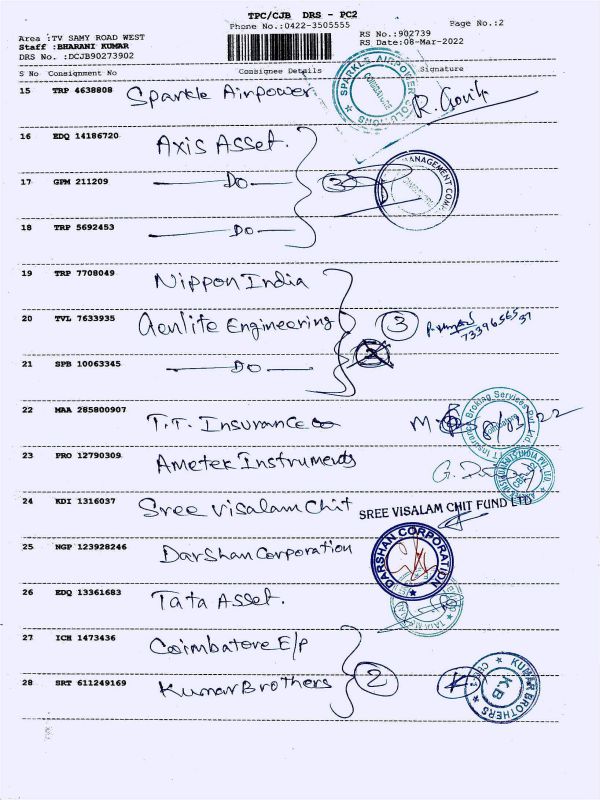 TPC/CJB DRS - PC2
Phone No.:0422-3505555
Page No.:2
Area :TV SAMY ROAD WEST
RS No.:902739
Staff :BHARANI KUMAR
RS Date:08-Mar-2022
DRS No. :DCJB90273902
S No Consignment No Consignee Details Signature
15 TRP 4638808 Sparkle Airpower
SPARKLE AIRPOWER SOLUTIONS
COIMBATORE
16 EDQ 14186720 Axis Asset.
17 GPM 211209 Do 3
MANAGEMENT COM
18 TRP 5692453 Do
19 TRP 7708049 Nippon India
20 TVL 7633935 Engineering 3
21 SPB 10063345 Do
22 MAA 285800907 T.T. Insurance
TT Insurance Broking Services Pvt. Ltd
23 PRO 12790309 Ametek Instruments
24 KDI 1316037 Sree Visalam Chit
SREE VISALAM CHIT FUND LTD
25 NGP 123928246 Darshan Corporation
DARSHAN CORPORATION
26 EDQ 13361683 Tata Asset.
27 ICH 1473436 Coimbatore E/P
28 SRT 611249169 Kumar Brothers 2
KUMAR BROTHERS
K.B